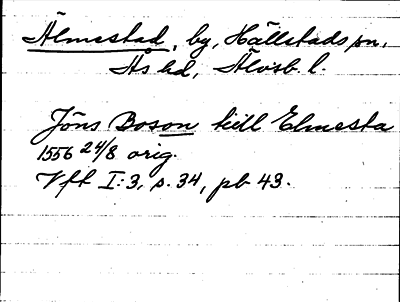 Älmestad, by, Hällstads sn,
Ås hd, Älvsb. l.
Jöns Boson till Elmesta
1556 24/8 orig.
Vff I:3, s. 34, pb 43.